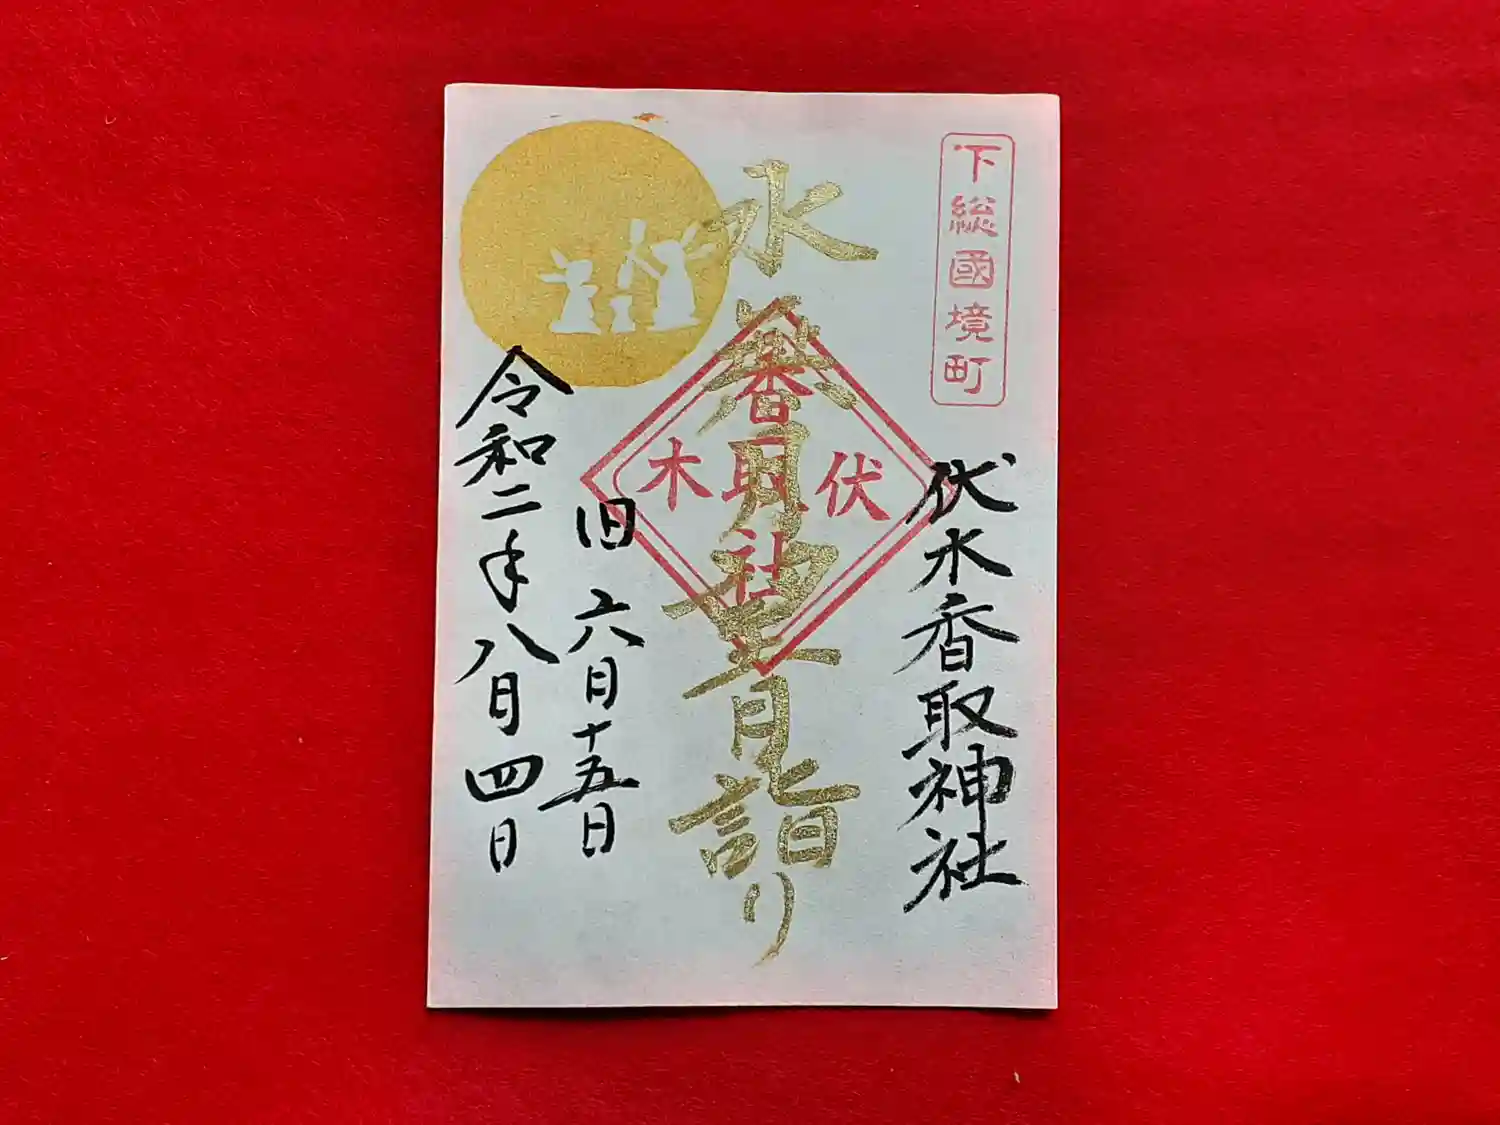 下総國境町
伏木香取神社
水無月望月詣り
伏木
香取社
旧六月十五日
令和二年八月四日